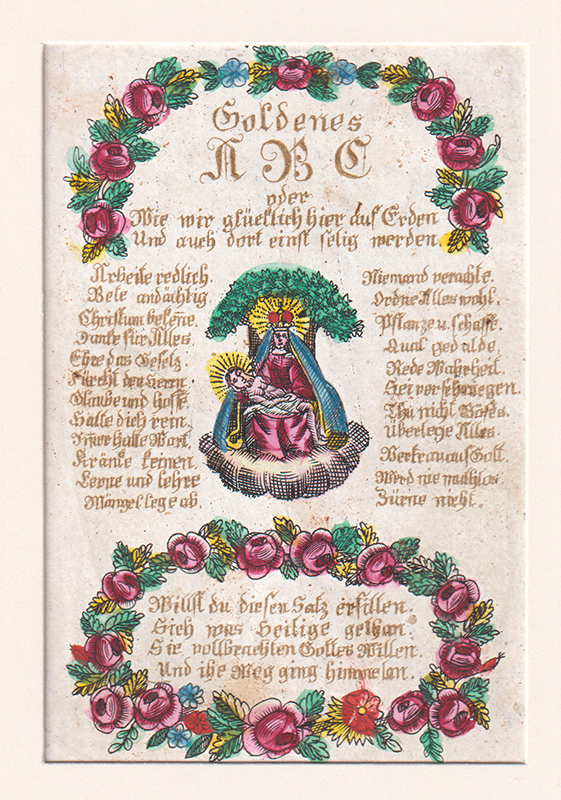 Goldenes
A B C
oder
Wie wir glücklich hier auf Erden
Und auch dort einst selig werden.
Arbeite redlich.
Bete andächtig.
Christum bekeñe.
Danke für Alles.
Ehre das Gesetz
Fürcht den Herrn
Glaube und hoffe.
Halte dich rein.
Imer halte Wort.
Kränke keinen.
Lerne und lehre
Mängel lege ab.
Niemand verachte.
Ordne Alles wohl.
Pflanze u. schaffe.
Qual ged alde.
Rede Wahrheit
Sei verschwiegen.
Thu nicht Böses.
Überlege Alles.
Vertrau auf Gott.
Werd nie muthlos.
Zürne nicht.
Willst du diesen Satz erfillen.
Sieh was Heilige gethan.
Sie vollbrachten Gottes Willen.
Und ihr Weg ging himmelan.